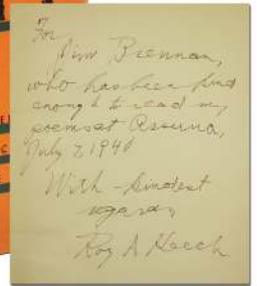 For
Jim Brennan,
who has been kind
enough to read my
poems at
July 7, 1940
With kindest
regards
Roy A